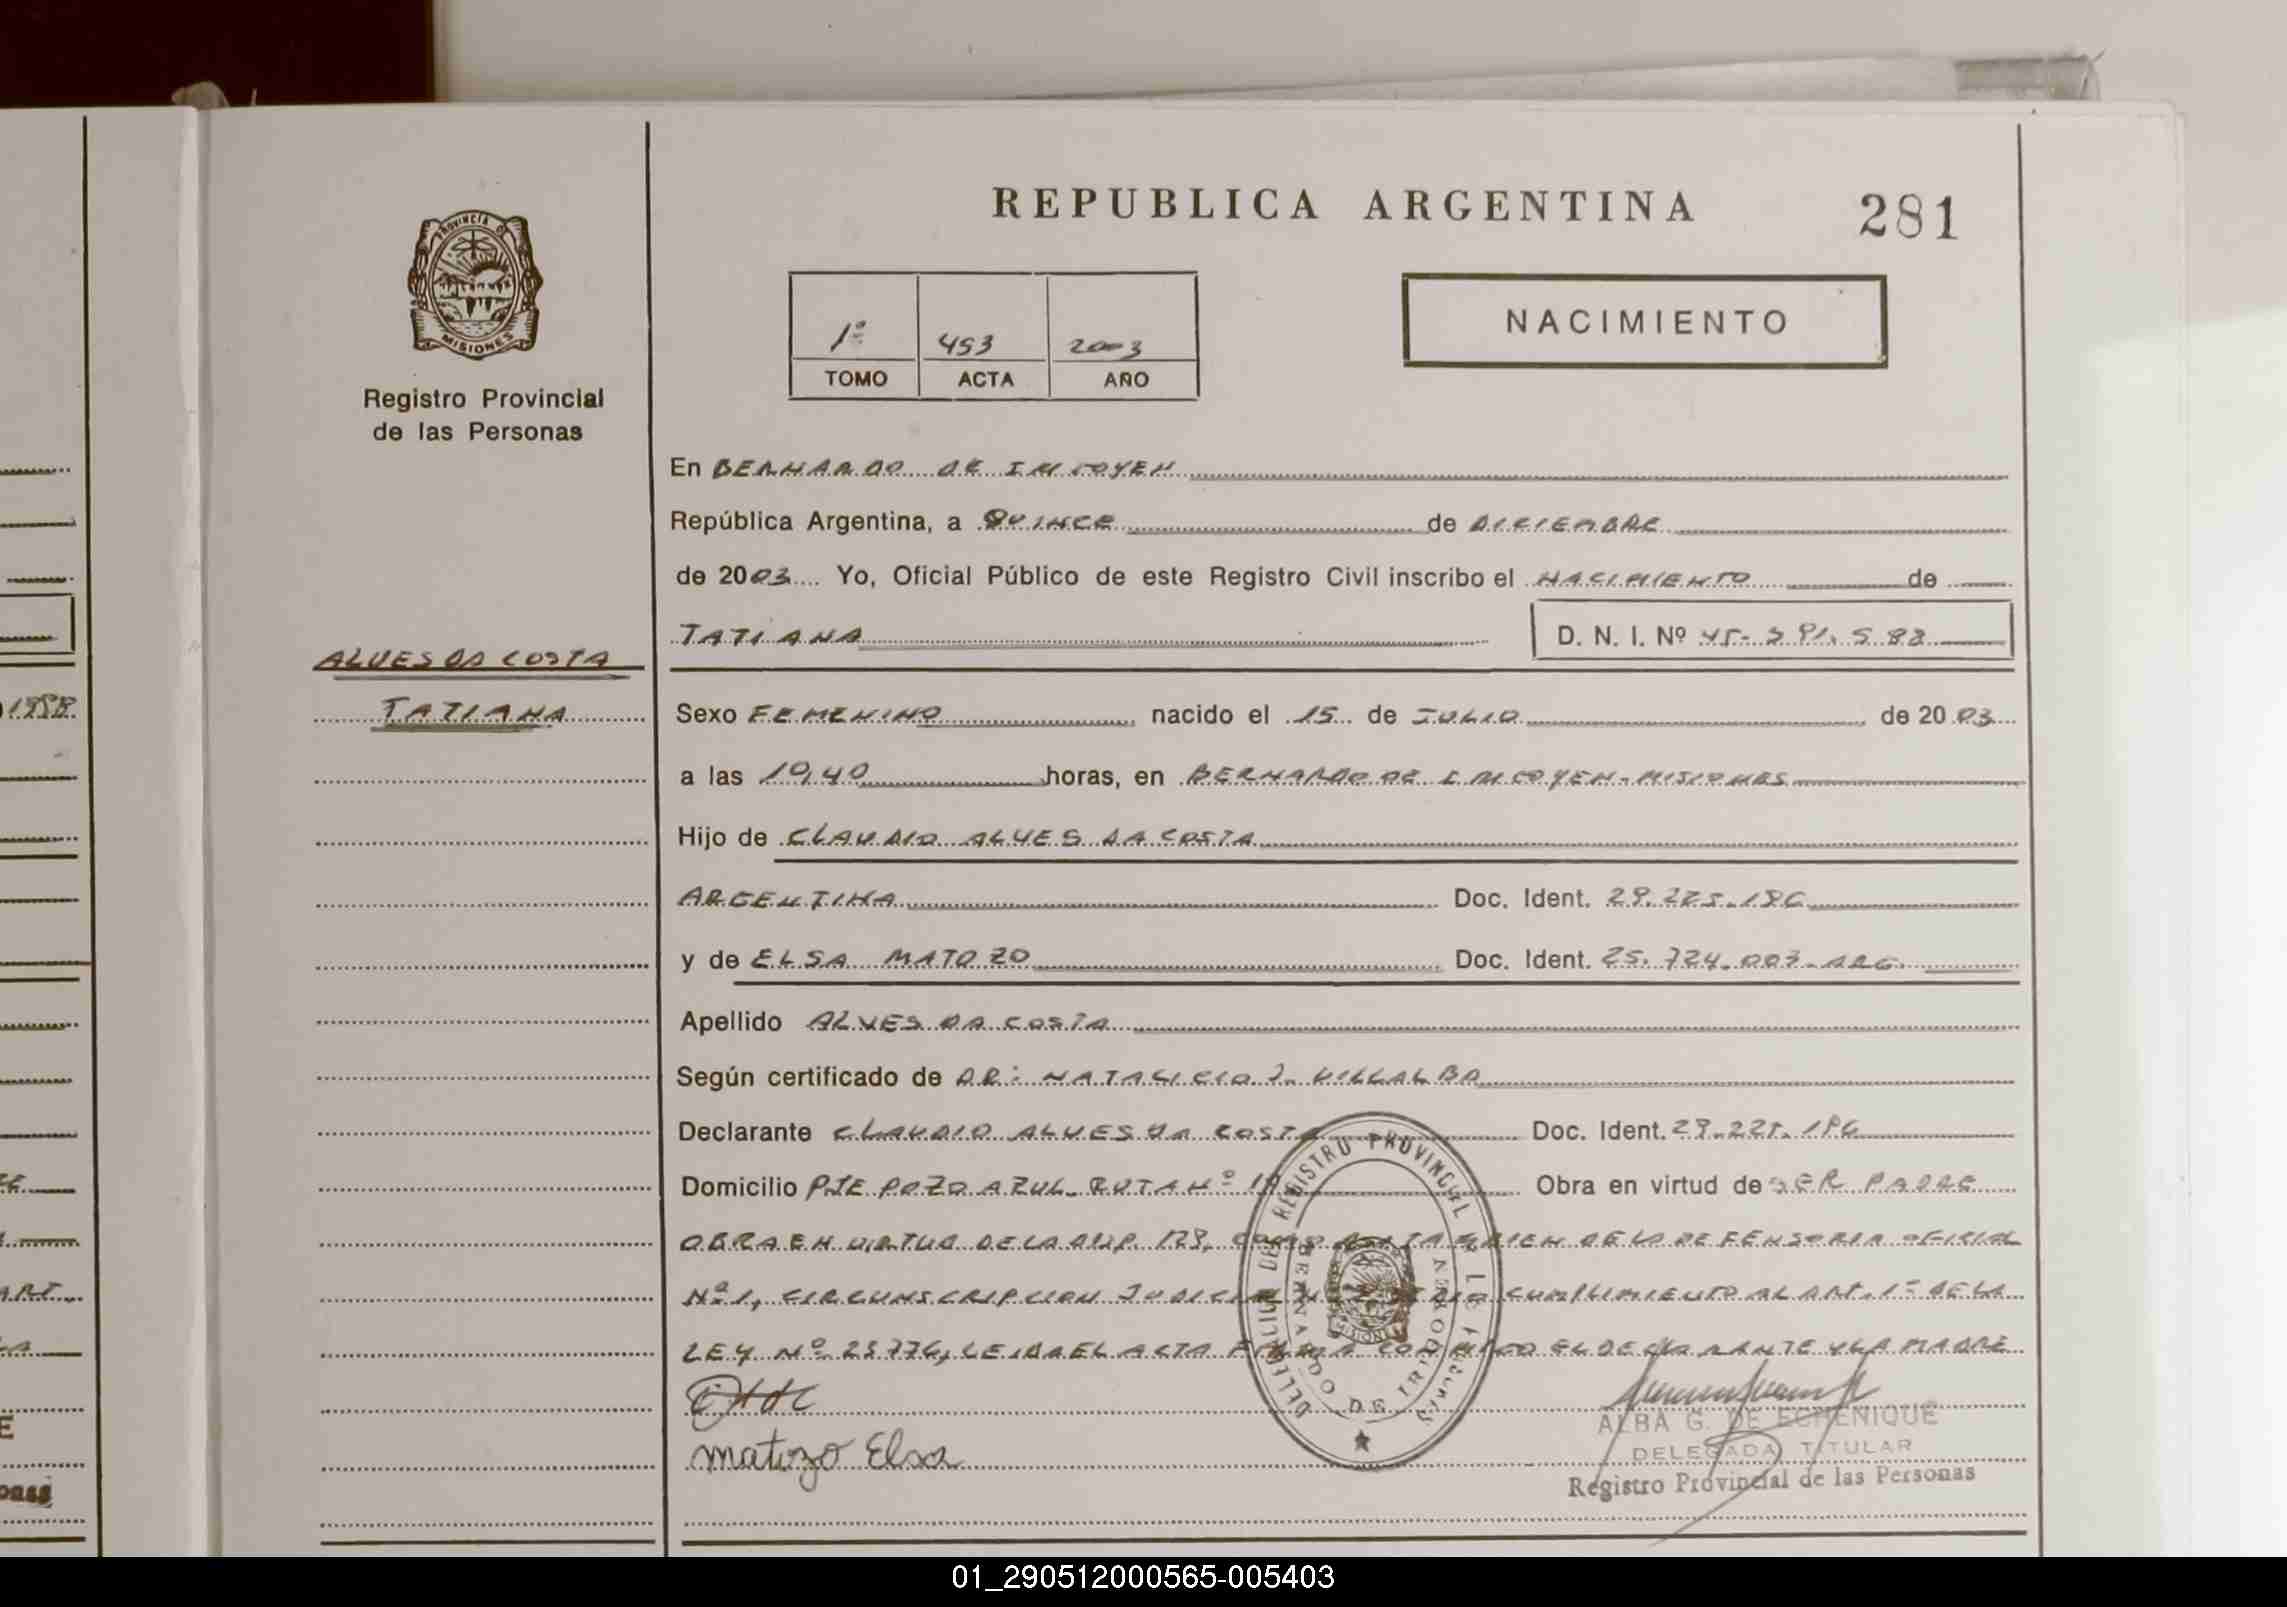 REPUBLICA ARGENTINA
281
PROVINCIA DE
MISIONES
Registro Provincial
de las Personas
1º 453 2003
TOMO ACTA AÑO
NACIMIENTO
En BERNARDO DE IRIGOYEN
República Argentina, a QUINCE de DICIEMBRE
de 2003 Yo, Oficial Público de este Registro Civil inscribo el NACIMIENTO de
TATIANA D. N. I. Nº
ALVES DA COSTA
TATIANA
Sexo FEMENINO nacido el 15 de JULIO de 2003
a las horas, en BERNARDO DE IRIGOYEN-MISIONES
Hijo de CLAUDIO ALVES DA COSTA
ARGENTINA Doc. Ident. 29.225.196
y de ELSA MATOZO Doc. Ident. 25.724.003-ARG.
Apellido ALVES DA COSTA
Según certificado de DR: NATALICIO J. VILLALBA
Declarante CLAUDIO ALVES DA COSTA Doc. Ident. 29.225.196
Domicilio PJE POZO AZUL-RUTA Nº Obra en virtud de SER PADRE
OBRA EN VIRTUD DE LA DISP. COMO ASI TAMBIEN DE LA DEFENSORIA OFICIAL
Nº 1, CIRCUNSCRIPCION JUDICIAL CUMPLIMIENTO AL ART. 1º DE LA
LEY Nº LEIDA EL ACTA FIRMA CONMIGO EL DECLARANTE Y LA MADRE
matozo Elsa
DELEGACION DE REGISTRO PROVINCIAL DE LAS PERSONAS
BERNARDO DE IRIGOYEN
ALBA G. DE ECHENIQUE
DELEGADA TITULAR
Registro Provincial de las Personas
01_290512000565-005403